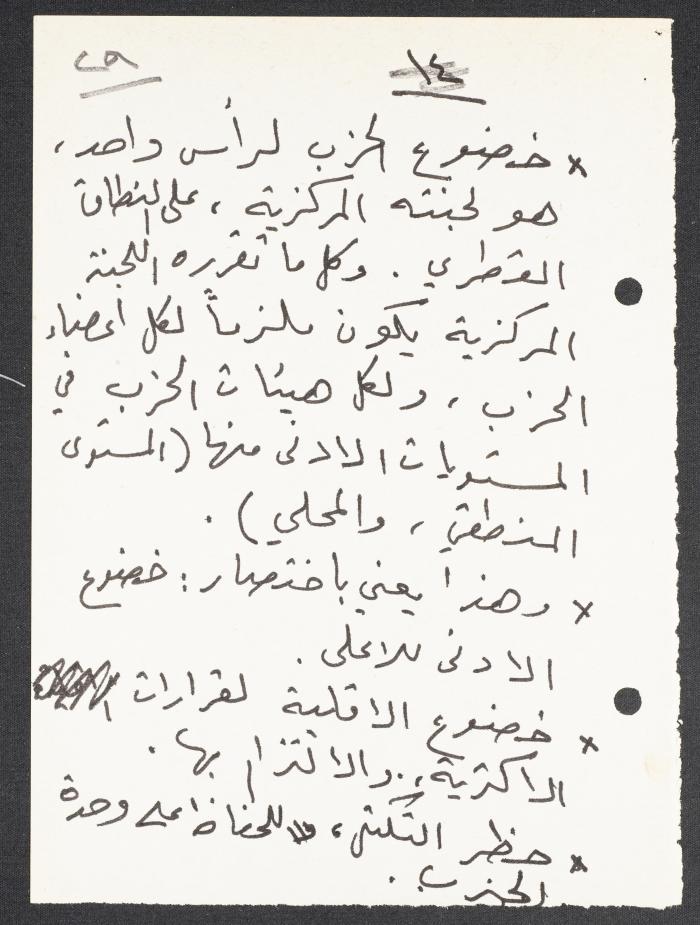 ٢٩
١٤
× خضوع الحزب لرأس واحد،
هو لجنته المركزية، على النطاق
القطري. وكل ما تقرره اللجنة
المركزية يكون ملزماً لكل أعضاء
الحزب، ولكل هيئات الحزب في
المستويات الادنى منها (المستوى
المنطقي، والمحلي).
× وهذا يعني باختصار: خضوع
الادنى للاعلى.
× خضوع الاقلية لقرارات
الاكثرية، والالتزام بها.
× حظر التكتل، للحفاظ على وحدة
الحزب.